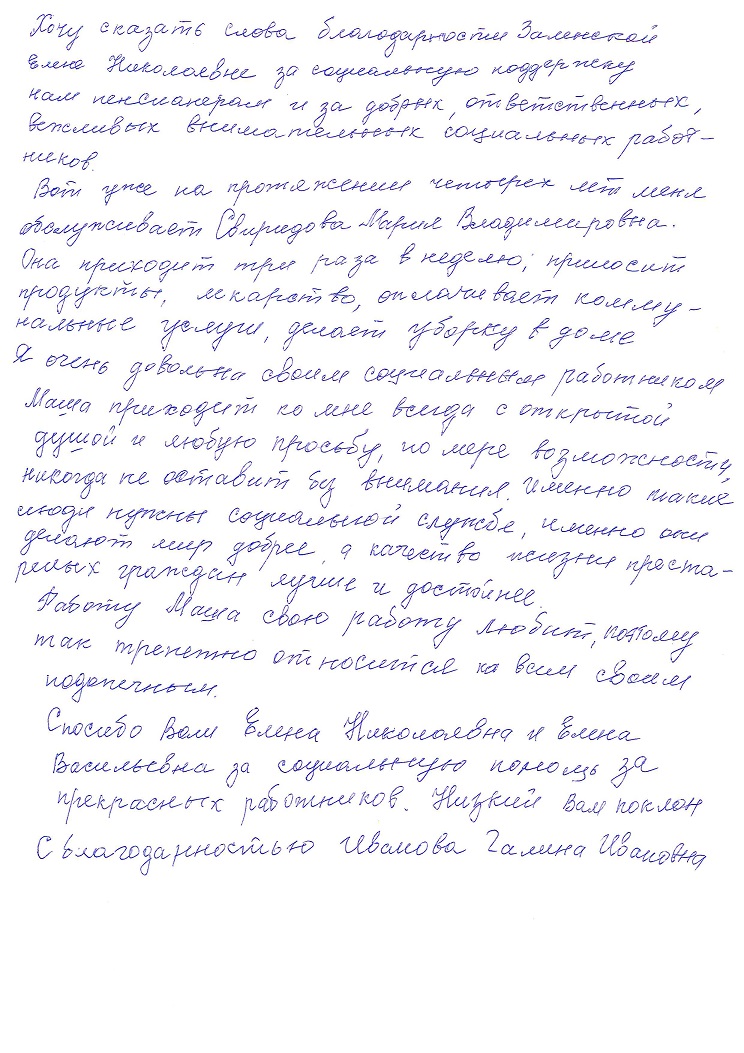 Хочу сказать слова благодарности Заленской
Елене Николаевне за социальную поддержку
нам пенсианерам и за добрых, ответственных,
вежливых внимательных социальных работ-
ников.
Вот уже на протяжении четырех лет меня
обслуживает Свиридова Мария Владимировна.
Она приходит три раза в неделю, приносит
продукты, лекарство, оплачивает комму-
нальные услуги, делает уборку в доме
Я очень довольна своим социальным работником
Маша приходит ко мне всегда с открытой
душой и любую просьбу, по мере возможности,
никогда не оставит без внимания. Именно такие
люди нужны социальной службе, именно они
делают мир добрее, а качество жизни преста-
релых граждан лучше и достойнее.
Работу Маша свою работу любит, поэтому
так трепетно относится ко всем своим
подопечным.
Спасибо Вам Елена Николаевна и Елена
Васильевна за социальную помощь за
прекрасных работников. Низкий Вам поклон
С благодарностью Иванова Галина Ивановна